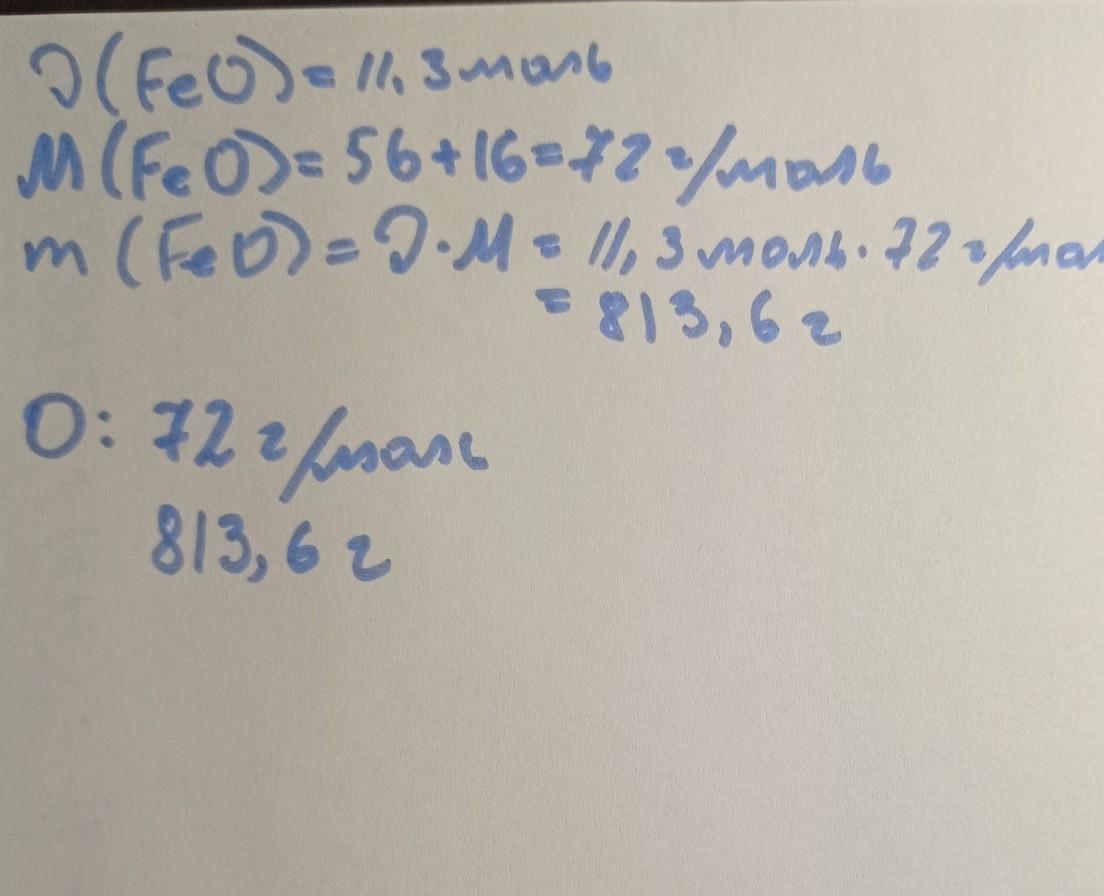 ν(FeO)= 11,3 моль
M(FeO)= 56+16=72 г/моль
m(FeO)= ν·M = 11,3 моль·72 г/мол
= 813,6 г
О: 72 г/моль
813,6 г